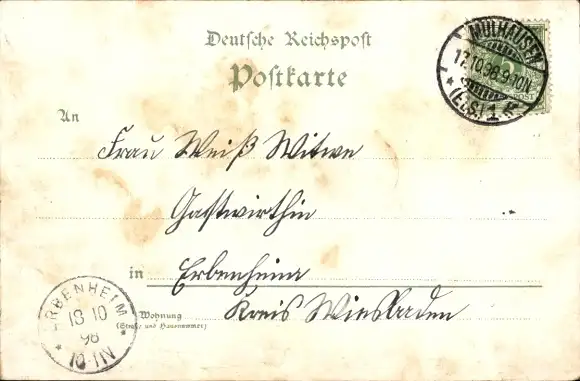 Deutsche Reichspost
Postkarte
MÜLHAUSEN
17.10.98.9-10N.
(ELS.) 1
POST
An
Frau Weiß Witwe
Gastwirthin
in Erbenheim
Wohnung
(Straße und Hausnummer)
Kreis Wiesbaden
ERBENHEIM
18 10
98